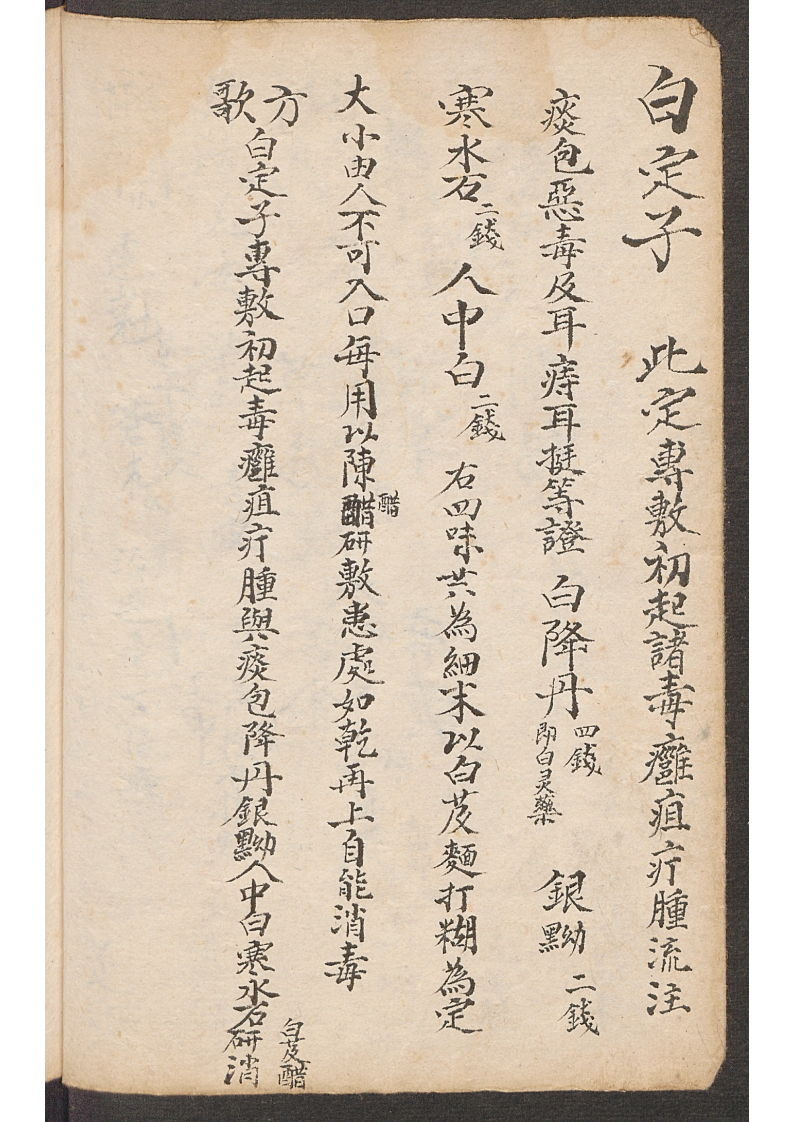 白定子　此定專敷初起諸毒癰疽疔腫流注
痰包惡毒及耳痔耳挺等證　白降丹四錢即白灵藥　銀黝二錢
寒水石二錢　人中白二錢　右四味共為細末以白芨麵打糊為定
大小由人不可入口每用以陳醋醋研敷患處如乾再上自能消毒
方歌　白定子專敷初起毒癰疽疔腫與痰包降丹銀黝人中白寒水石研消白芨醋